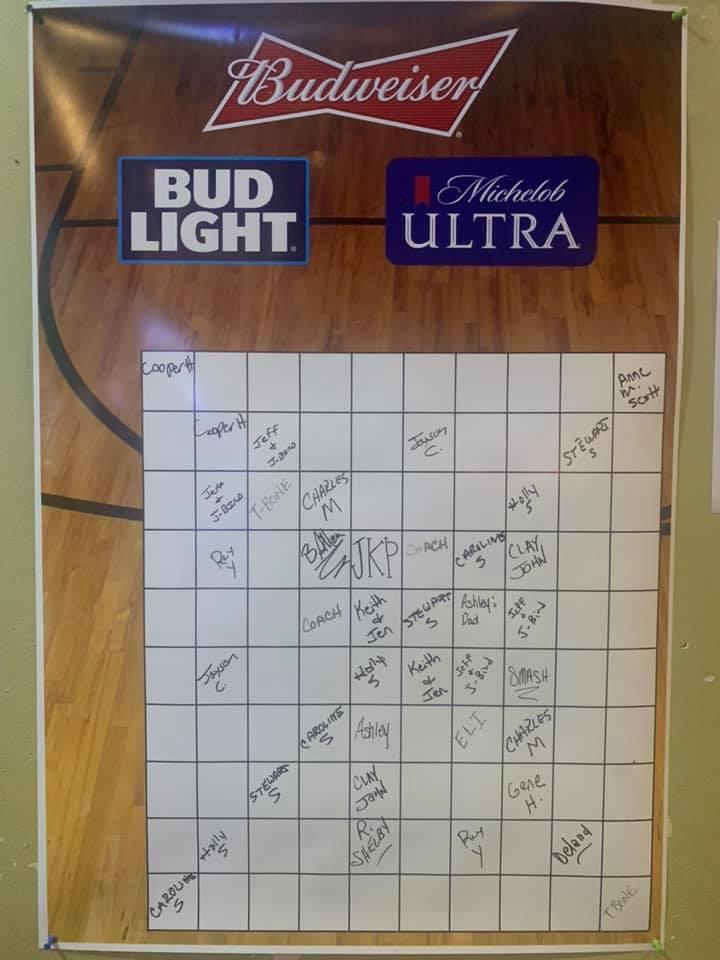 Budweiser
BUD
LIGHT
Michelob
ULTRA
Cooper H
Anne
M.
Scott
Cooper H
Jeff
+
J-Bird
Jaxson
C.
STEWART
S
Jeff
+
J-Bird
T-BONE
CHARLES
M
Holly
S
Ray
Y
JKP
COACH
CAROLINE
S
CLAY
JOHN
COACH
Keith
&
Jen
STEWART
S
Ashley's
Dad
Jeff
+
J-Bird
Jaxson
C.
Holly
S
Keith
&
Jen
Jeff
+
J-Bird
SMASH
CAROLINE
S
Ashley
ELI
CHARLES
M
STEWART
S
CLAY
JOHN
Gene
H.
Holly
S
R.
SHELBY
Ray
Y
Deland
CAROLINE
S
T BONE